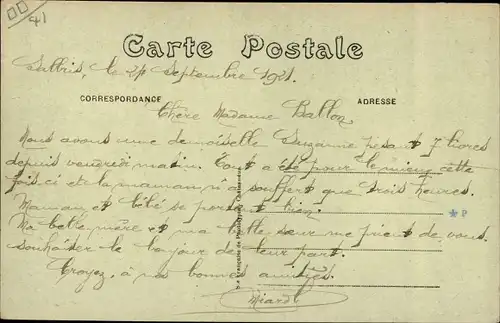 41
Carte Postale
Salbris, le 24 Septembre 1921.
CORRESPONDANCE
ADRESSE
Chère Madame Ballon
Nous avons une demoiselle Suzanne pesant 7 livres
depuis vendredi matin. Tout a été pour le mieux cette
fois ci et la maman n'a souffert que trois heures.
Maman et bébé se portent bien.
Ma belle mère et ma belle sœur me prient de vous
souhaiter le bonjour de leur part.
Croyez, à nos bonnes amitiés.
Miard
* P